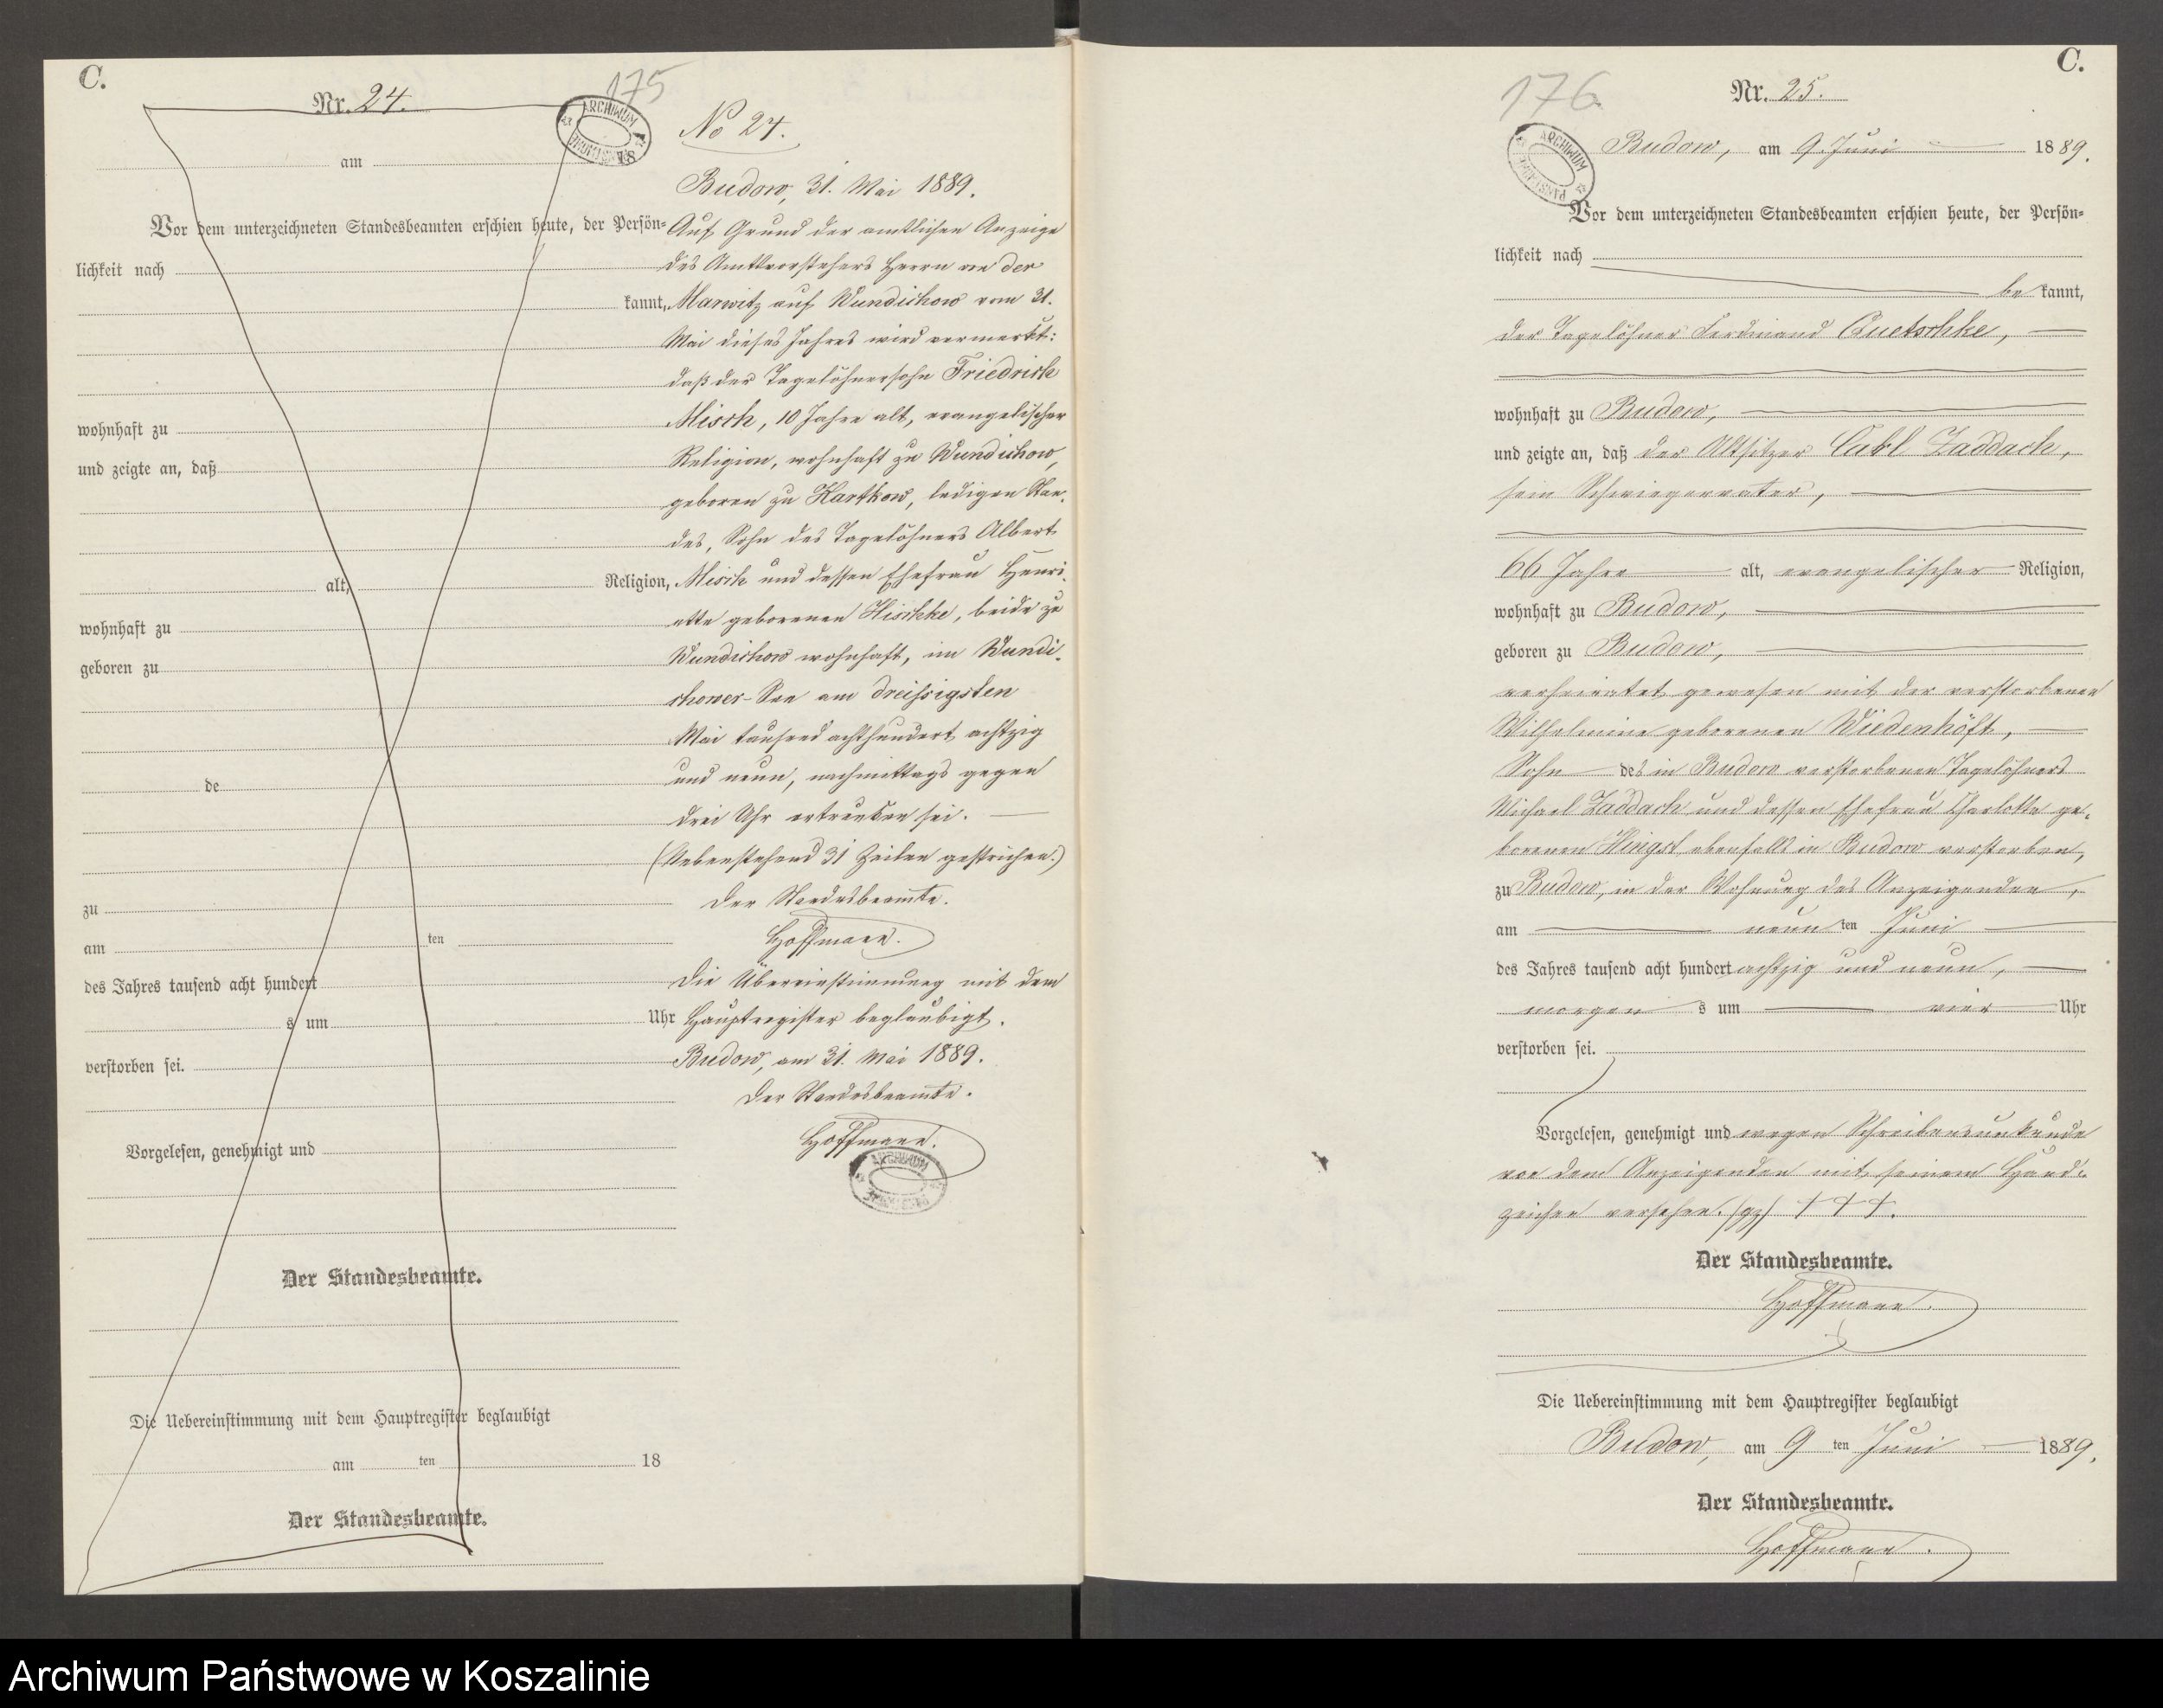 C.
Nr. 24.
175
ARCHIWUM
am
Vor dem unterzeichneten Standesbeamten erschien heute, der Persön-
lichkeit nach
kannt,
wohnhaft zu
und zeigte an, daß
alt, Religion,
wohnhaft zu
geboren zu
de
zu
am ten
des Jahres tausend acht hundert
s um Uhr
verstorben sei.
Vorgelesen, genehmigt und
Der Standesbeamte.
Die Uebereinstimmung mit dem Hauptregister beglaubigt
am ten 18
Der Standesbeamte.
No 24.
Budow, 31. Mai 1889.
Auf Grund der amtlichen Anzeige
des Amtsvorstehers Herrn von der
Marwitz auf Wundichow vom 31.
Mai dieses Jahres wird vermerkt:
daß der Tagelöhnersohn Friedrich
Misch, 10 Jahre alt, evangelischer
Religion, wohnhaft zu Wundichow,
geboren zu Kartkow, ledigen Stan-
des, Sohn des Tagelöhners Albert
Misch und dessen Ehefrau Henri-
ette geborenen Hischke, beide zu
Wundichow wohnhaft, im Wundi-
chower-See am dreißigsten
Mai tausend achthundert achtzig
und neun, nachmittags gegen
drei Uhr ertrunken sei.
(Nebenstehend 31 Zeilen gestrichen.)
Der Standesbeamte.
Hoffmann.
Die Übereinstimmung mit dem
Hauptregister beglaubigt.
Budow, am 31. Mai 1889.
Der Standesbeamte.
Hoffmann.
ARCHIWUM
C.
176
Nr. 25.
ARCHIWUM
Budow, am 9. Juni 1889.
Vor dem unterzeichneten Standesbeamten erschien heute, der Persön-
lichkeit nach
be kannt,
der Tagelöhner Ferdinand Quetschke,
wohnhaft zu Budow,
und zeigte an, daß der Altsitzer Carl Zaddach,
sein Schwiegervater,
66 Jahre alt, evangelischer Religion,
wohnhaft zu Budow,
geboren zu Budow,
verheiratet gewesen mit der verstorbenen
Wilhelmine geborenen Wiedenhöft,
Sohn des in Budow verstorbenen Tagelöhners
Michael Zaddach und dessen Ehefrau Charlotte ge-
borenen Hingst ebenfalls in Budow verstorben,
zu Budow, in der Wohnung des Anzeigenden,
am neun ten Juni
des Jahres tausend acht hundert achtzig und neun,
morgen s um vier Uhr
verstorben sei.
Vorgelesen, genehmigt und wegen Schreibensunkunde
von dem Anzeigenden mit seinem Hand-
zeichen versehen. (gz) +++.
Der Standesbeamte.
Hoffmann.
Die Uebereinstimmung mit dem Hauptregister beglaubigt
Budow, am 9 ten Juni 1889.
Der Standesbeamte.
Hoffmann.
Archiwum Państwowe w Koszalinie